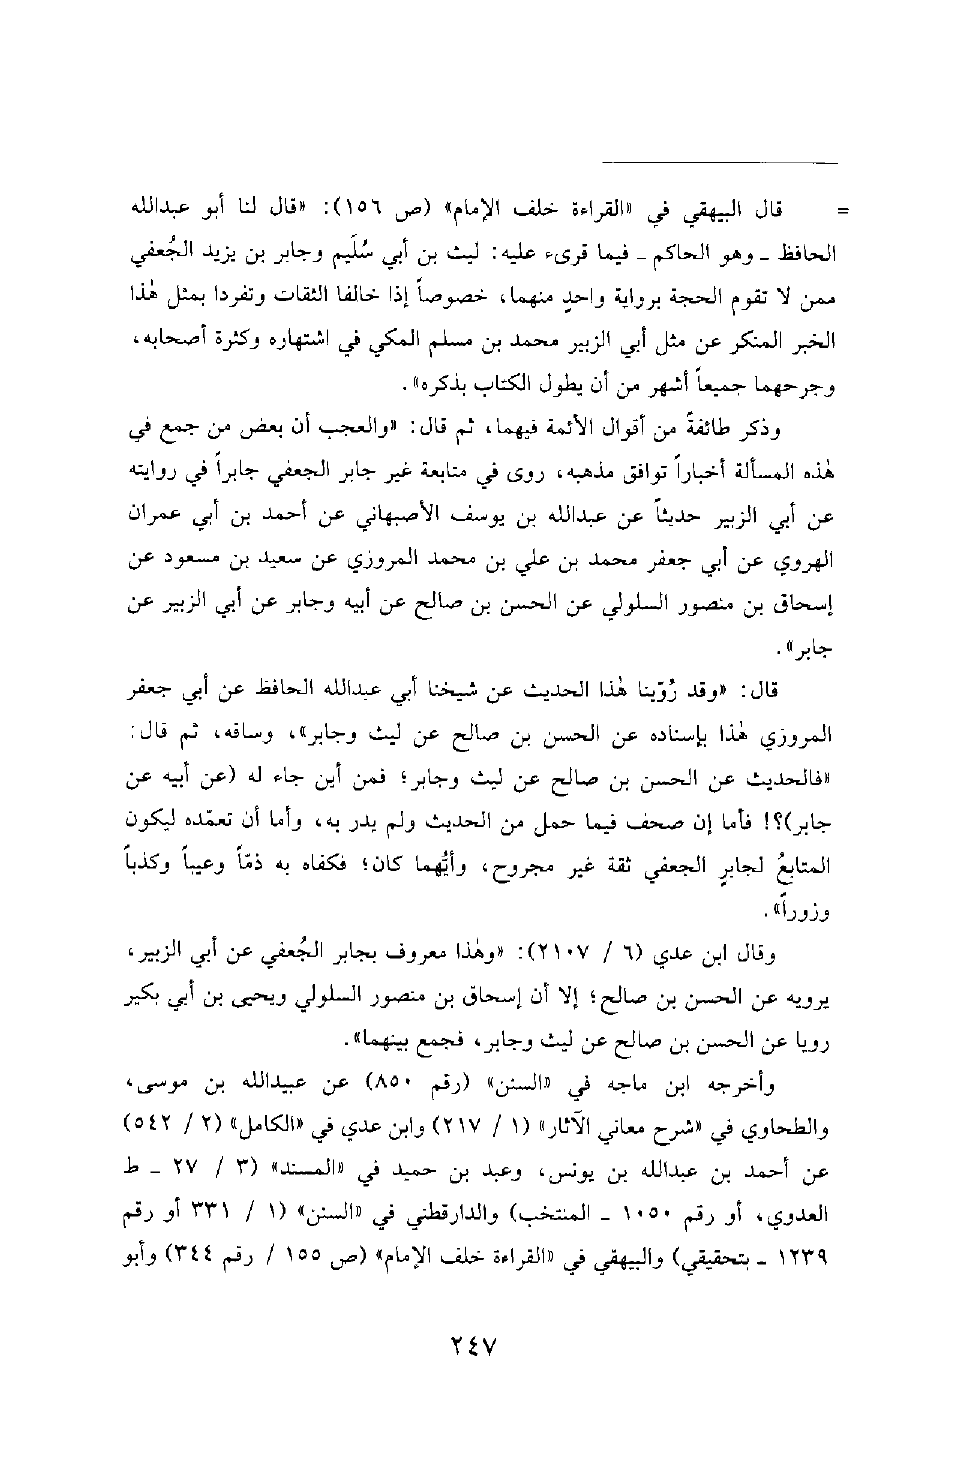 = قال البيهقي في «القراءة خلف الإمام» (ص ١٥٦): «قال لنا أبو عبدالله
الحافظ ـ وهو الحاكم ـ فيما قرىء عليه: ليث بن أبي سُلَيم وجابر بن يزيد الجُعفي
ممن لا تقوم الحجة برواية واحدٍ منهما، خصوصاً إذا خالفا الثقات وتفردا بمثل هٰذا
الخبر المنكر عن مثل أبي الزبير محمد بن مسلم المكي في اشتهاره وكثرة أصحابه،
وجرحهما جميعاً أشهر من أن يطول الكتاب بذكره».
وذكر طائفةً من أقوال الأئمة فيهما، ثم قال: «والعجب أن بعض من جمع في
هٰذه المسألة أخباراً توافق مذهبه، روى في متابعة غير جابر الجعفي جابراً في روايته
عن أبي الزبير حديثاً عن عبدالله بن يوسف الأصبهاني عن أحمد بن أبي عمران
الهروي عن أبي جعفر محمد بن علي بن محمد المروزي عن سعيد بن مسعود عن
إسحاق بن منصور السلولي عن الحسن بن صالح عن أبيه وجابر عن أبي الزبير عن
جابر».
قال: «وقد رُوّينا هٰذا الحديث عن شيخنا أبي عبدالله الحافظ عن أبي جعفر
المروزي هٰذا بإسناده عن الحسن بن صالح عن ليث وجابر»، وساقه، ثم قال:
«فالحديث عن الحسن بن صالح عن ليث وجابر؛ فمن أين جاء له (عن أبيه عن
جابر)؟! فأما إن صحف فيما حمل من الحديث ولم يدر به، وأما أن تعمّده ليكون
المتابعُ لجابرٍ الجعفي ثقة غير مجروح، وأيُّهما كان؛ فكفاه به ذمّاً وعيباً وكذباً
وزوراً».
وقال ابن عدي (٦ / ٢١٠٧): «وهٰذا معروف بجابر الجُعفي عن أبي الزبير،
يرويه عن الحسن بن صالح؛ إلا أن إسحاق بن منصور السلولي ويحيى بن أبي بكير
رويا عن الحسن بن صالح عن ليث وجابر، فجمع بينهما».
وأخرجه ابن ماجه في «السنن» (رقم ٨٥٠) عن عبيدالله بن موسى،
والطحاوي في «شرح معاني الآثار» (١ / ٢١٧) وابن عدي في «الكامل» (٢ / ٥٤٢)
عن أحمد بن عبدالله بن يونس، وعبد بن حميد في «المسند» (٣ / ٢٧ ـ ط
العدوي، أو رقم ١٠٥٠ ـ المنتخب) والدارقطني في «السنن» (١ / ٣٣١ أو رقم
١٢٣٩ ـ بتحقيقي) والبيهقي في «القراءة خلف الإمام» (ص ١٥٥ / رقم ٣٤٤) وأبو
٢٤٧